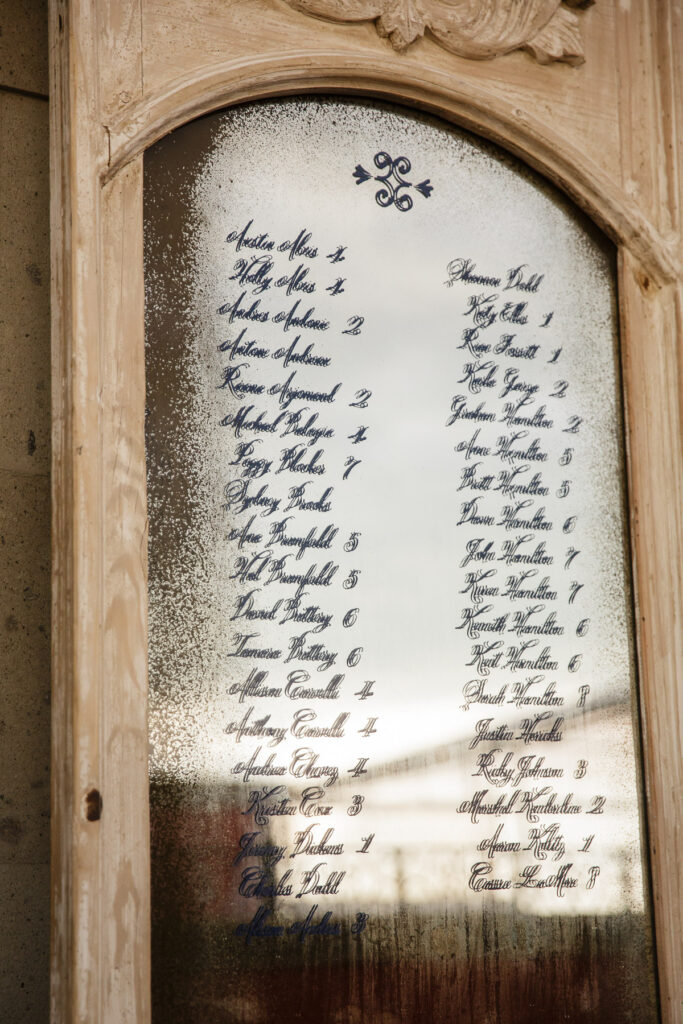 Austin Abis 1
Holly Abis 1
Andres Andonie 2
Anton Anderson
Roene 2
Michael Balagia 1
Peggy Blocker 7
Sydney Brooks
Ann Broomfield 5
Hal Broomfield 5
David Brottery 6
Tamara Brottery 6
Allison Carvelli 4
Anthony Carvelli 4
Andrea Chavez 4
Kristin Cox 3
Jeremy Dickens 1
Charles Dodd
3
Shannon Dodd
Katy Ellis 1
Rene Fossett 1
Kalie George 2
Graham Hamilton 2
Anne Hamilton 5
Brett Hamilton 5
Dawn Hamilton 6
John Hamilton 7
Karen Hamilton 7
Kenneth Hamilton 6
Hamilton 6
Sarah Hamilton 8
Justin Horricks
Ricky Johnson 3
Marshall 2
Aaron 1
Cassie LaMere 8